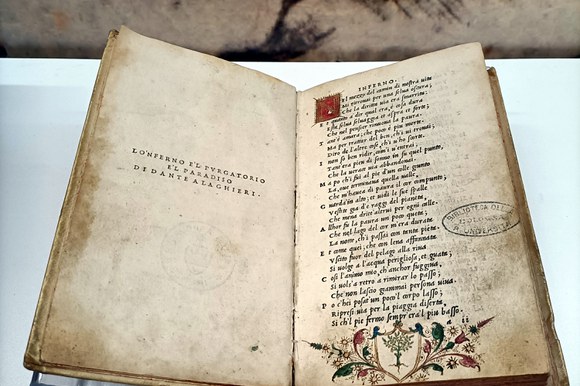 LO'NFERNO E'L PVRGATORIO
E'L PARADISO
DE DANTE ALAGHIERI.
INFERNO.
NEl mezzo del camin di nostra uita
Mi ritrouai per una selua oscura;
Che la diritta uia era smarrita:
E t quanto a dir qual era, è cosa dura
Esta selua seluaggia et aspra et forte;
Che nel pensier rinnoua la paura.
T ant'è amara; che poco è piu morte.
Ma per trattar del ben, ch'i ui trouai;
Diro de l'altre cose, ch'i u'ho scorte.
I non so ben ridir, com'i u'entrai;
Tant'era pien di sonno in su quel punto,
Che la uerace uia abbandonai.
M a po ch'i fui al pie d'un colle giunto
La, oue terminaua quella ualle,
Che m'hauea di paura il cor compunto;
G uardai in alto; et uidi le sue spalle
Vestite gia de raggi del pianeta,
Che mena dritt'altrui per ogni calle.
A llhor fu la paura un poco queta;
Che nel lago del cor m'era durata
La notte, ch'i passai con tanta pieta.
E t come quei; che con lena affannata
Vscito fuor del pelago alla riua
Si uolge a l'acqua perigliosa, et guata;
C osi l'animo mio, ch'anchor fuggiua,
Si uols'a retro a rimirar lo passo;
Che non lascio giammai persona uiua.
P o ch'ei posat'un poco'l corpo lasso;
Ripresi uia per la piaggia diserta,
Si ch'el pie fermo sempr'era'l piu basso.
a ii
BIBLIOTECA DELLA
BOLOGNA
R. UNIVERSITÀ